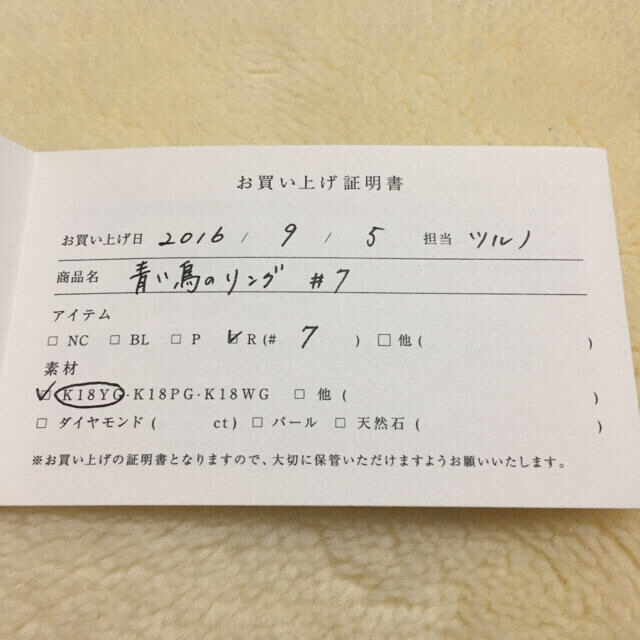 お買い上げ証明書
お買い上げ日 2016 / 9 / 5 担当 ツルノ
商品名 青い鳥のリング #7
アイテム
□ NC □ BL □ P ☑ R (# 7 ) □ 他 ( )
素材
☑ K18YG・K18PG・K18WG □ 他 ( )
□ ダイヤモンド ( ct) □ パール □ 天然石 ( )
※お買い上げの証明書となりますので、大切に保管いただけますようお願いいたします。